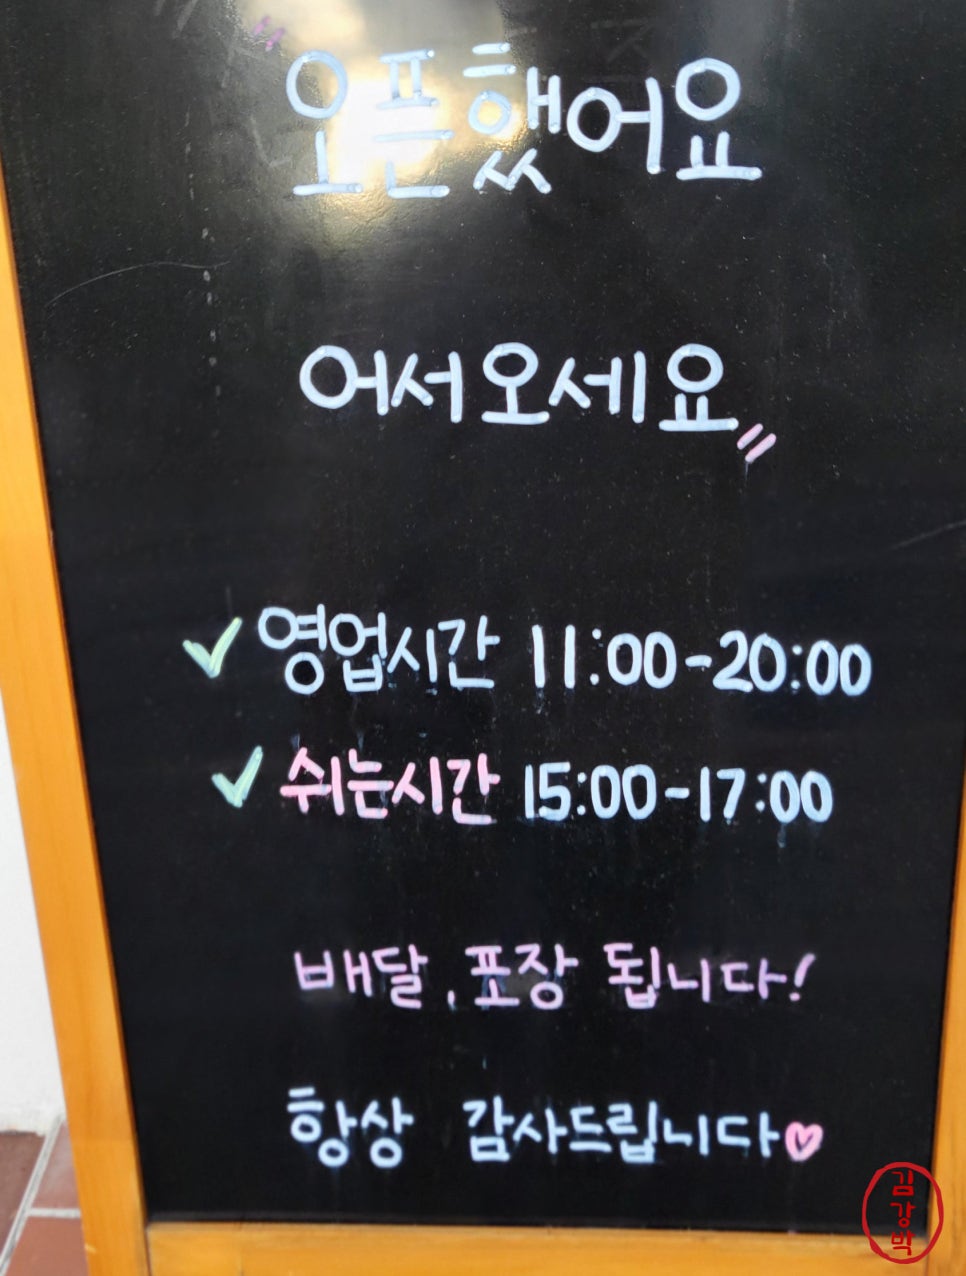 오픈했어요
어서오세요
영업시간 11:00-20:00
쉬는시간 15:00-17:00
배달, 포장 됩니다!
항상 감사드립니다♡
김
강
박